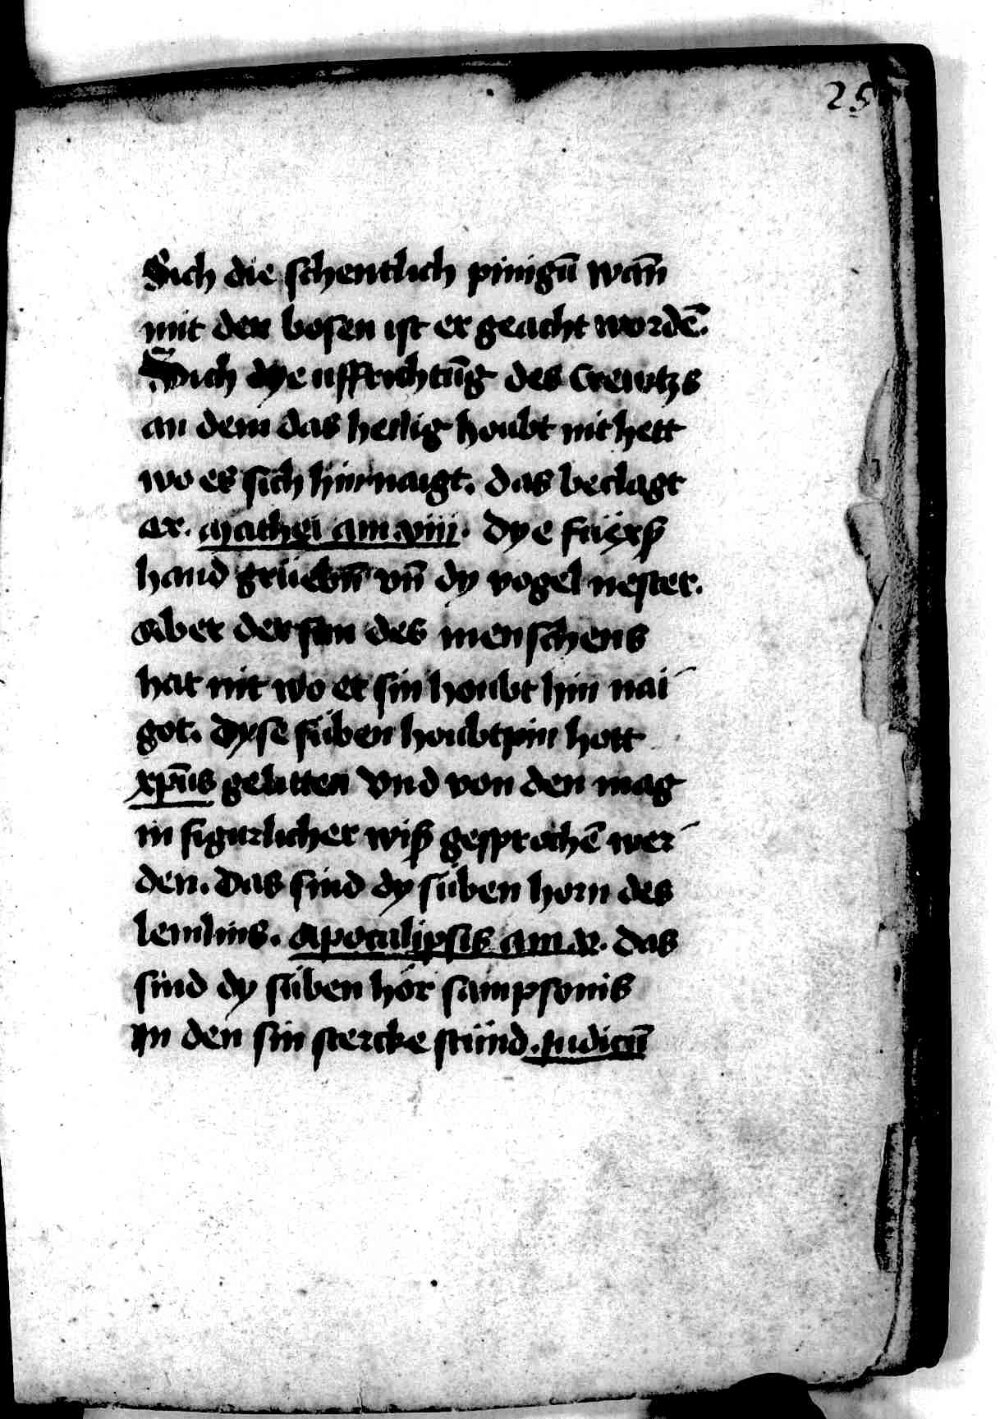 25
Sich die schentlich pinigu̅ wan̅
mit den bosen ist er geacht worde̅.
Sich dye uffrichtu̅g des Crewtzs
an dem das heilig houbt nit hett
wo es sich hin naigt. das beclagt
er. Mathei am viii. Dye füxß
hand grüebn̅ vn̅ dy vogel nester.
Aber der sun des menschens
hat nit wo er sin houbt hin nai
got. Dyse süben houbtpin hott
xp̅us gelitten Vnd von den mag
in figurlicher wiß gesproche̅ wer
den. Das sind dy süben horn des
lemlins. Apocalipsis am v. das
sind dy süben hör sampsonis
In den sin stercke stünd. Judicu̅